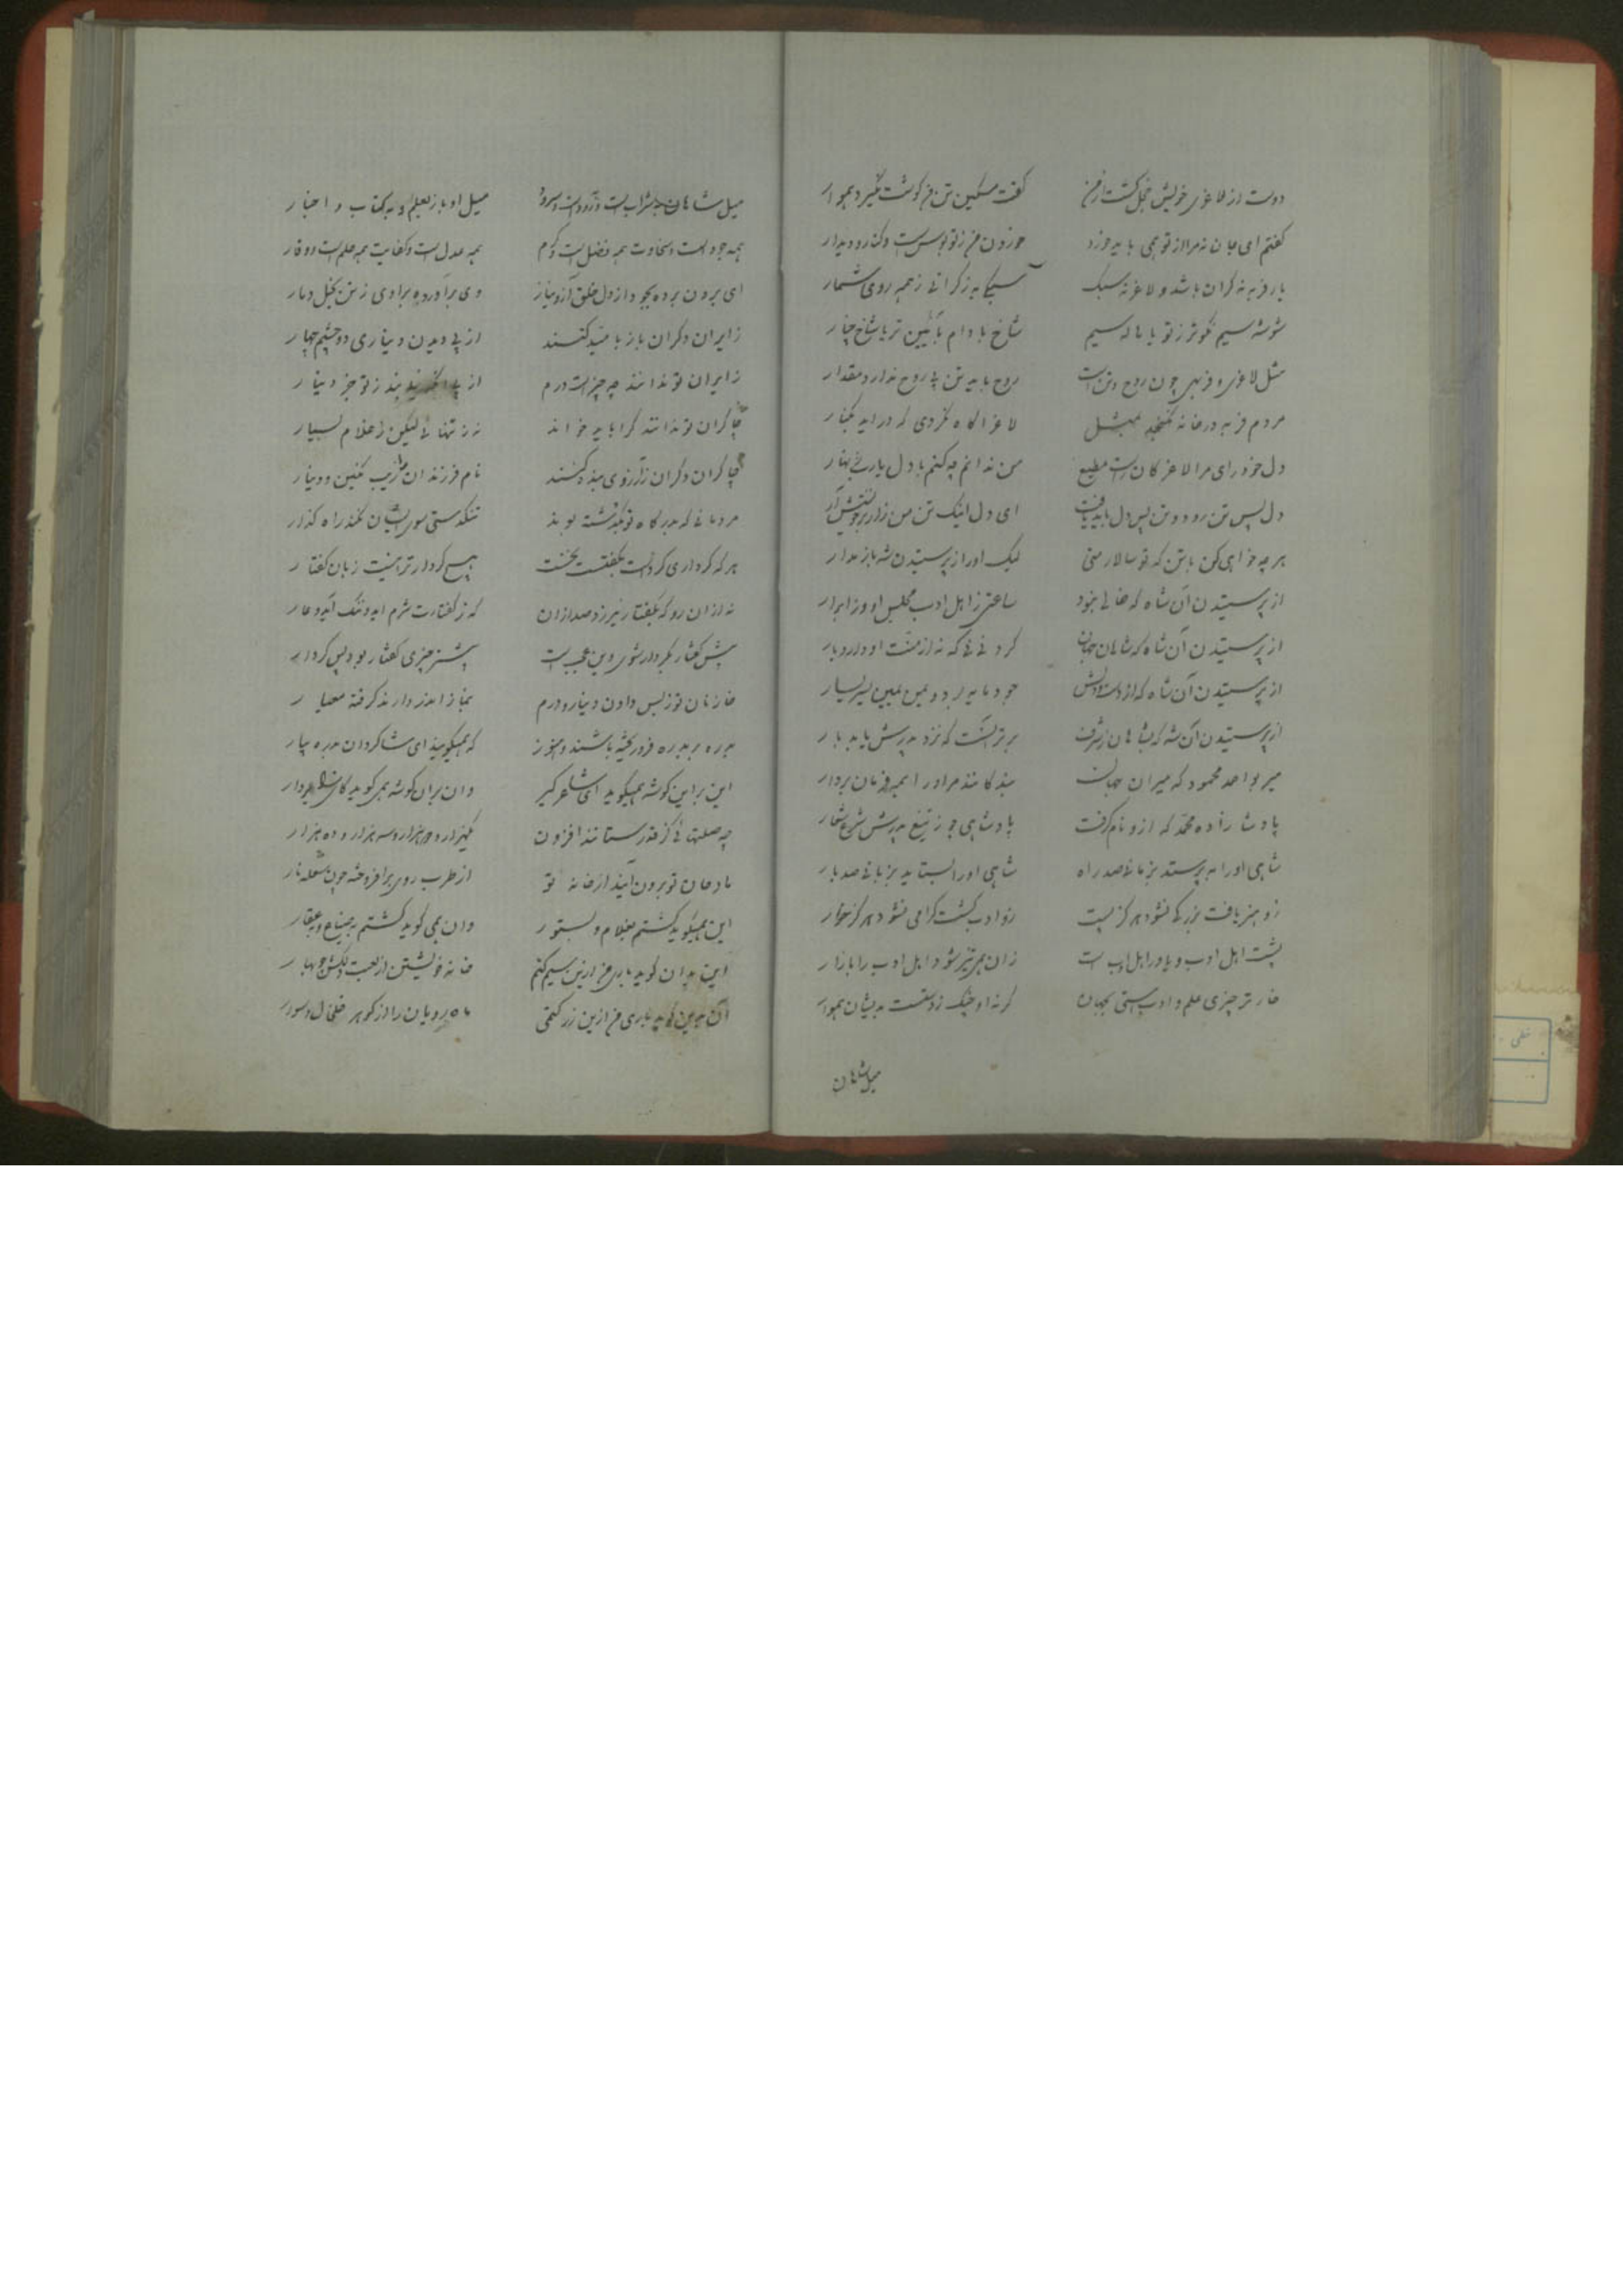 دوست از لاغری خویش خجل گشت ز من گفت مسکین تن من گوشت نگیرد هموار
گفتم ای جان نه مرا از تو همی باید خورد خوردن من ز تو بوس است و کنار و دیدار
یار فربه نه گران باشد و لاغر نه سبک سبکی به ز گرانی ز همه روی شمار
شوشه سیم نکوتر ز تو یا ماله سیم شاخ بادام بآیین تر یا شاخ چنار
مثل لاغری و فربهی چون روح و تن است روح باید تن بی روح ندارد مقدار
مردم فربه در خانه نگنجد بمثل لاغر آگاه نگردی که در آید بکنار
دل خود رای مرا لاغرکان است مطیع من ندانم چه کنم با دل یارب زنهار
دل پس تن رود و تن پس دل باید یافت ای دل اینک تن من زار
هر چه خواهی کن با تن که تو سالار منی لیک او را ز پرستیدن شه باز مدار
از پرستیدن آن شاه که خالی نبود ساعتی ز اهل ادب مجلس او وز ابرار
از پرستیدن آن شاه که شاهان جهان گردنی نی که نه از منت او دارد بار
از پرستیدن آن شاه که از دست و دلش جود مایه برد و یمن یمین یسر یسار
از پرستیدن آن شه که شاهان ز شرف برتر آنست که نزد پدرش یابد بار
میر بو احمد محمود که میران جهان بندگانند مر او را همه فرمان بردار
پادشازاده محمد که از و نام گرفت پادشاهی چو ز تیغ پدرش شرع شعار
شاهی او را به پرستد بزمانی صد راه شاهی او را بستاید بزبانی صد بار
زو هنر یافت بزرگی نشود هرگز پست زو ادب گشت گرامی نشود هرگز خوار
پشت اهل ادب و یاور اهل ادب است زان همی تیز شود اهل ادب را بازار
خوارتر چیزی علم و ادبستی بجهان گر نه او چنگ زدستست بدیشان هموار
میل شاهان
میل شاهان بشراب است و رود است و سرود میل او باز بعلم و بکتاب و اخبار
همه جود است و سخاوت همه فضل است و کرم همه عدل است و کفایت همه حلم است و وقار
ای برون برده بجود از دل خلق آز و نیاز وی برآورده برادی ز تن بخل دمار
زایران دگران باز نپسند کنند از پی دیدن دیناری دو چشم چهار
زایران تو ندانند چه چیز است درم از پی آنکه نیابند ز تو جز دینار
چاکران تو ندانند کرا باید خواند نه ز تنهائی لیکن ز غلام بسیار
چاکران دگران ز آرزوی بنده کنند نام فرزندان نگین و دینار
مردمانی که بدرگاه تو بگذشته بوند تنگدستی سوی ایشان نکند راه گذار
هر که کرداری کرد است بگفتست نخست هیچ کردار ترا نیست زبان گفتار
نه از آن رو که بگفتار نیرزد صد از آن که ز گفتارت شرم آید و ننگ آید و عار
پیش گفتار بکردار شوی وین عجب است بیشتر چیزی گفتار بود پس کردار
خازنان تو ز بس دادن دینار و درم بنماز اندر دارند گرفته معیار
بدره بر بدره فرو ریخته باشند و هنوز که همیگویند ای شاگردان بدره بیار
این بر این گوشه همیگوید ای شاعر گیر وان بران گوشه همی گوید کای زایر دار
چه صلتهائی کز قدر ستانند افزون یکهزار و دو هزار و سه هزار و ده هزار
مادحان تو برون آیند از خانه تو از طرب روی برافروخته چون شعله نار
این همیگوید گشتم بغلام و بستور وان همی گوید گشتم بضیاع و بعقار
این بدان گوید باری من ازین سیم کنم خانه خویشتن از لعبت دلکش چو بهار
آن بدین گوید باری من ازین زر کنمی ماه رویان را از گوهر خلخال و سوار